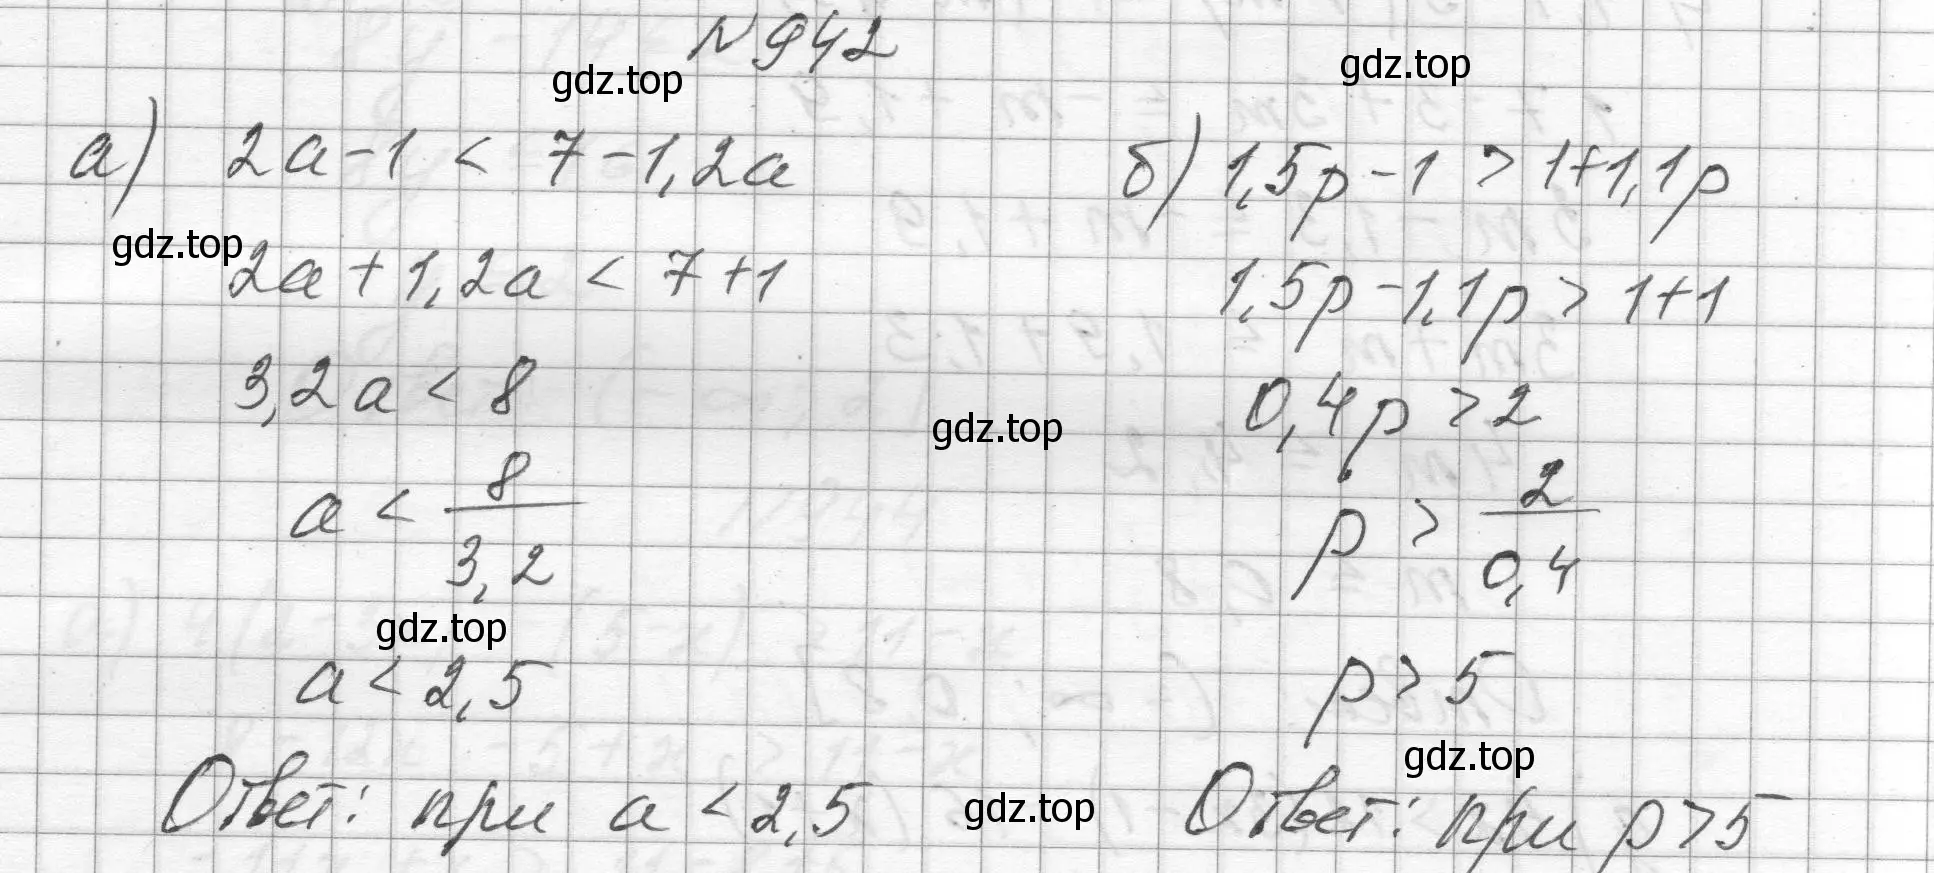 №942
gdz.top
gdz.top
а) 2a-1 < 7-1,2a
gdz.top
2a+1,2a < 7+1
3,2a < 8
a < 8/3,2
gdz.top
a < 2,5
Ответ: при a < 2,5
gdz.top
б) 1,5p-1 > 1+1,1p
1,5p-1,1p > 1+1
0,4p > 2
p > 2/0,4
p > 5
gdz.top
Ответ: при p > 5
gdz.top